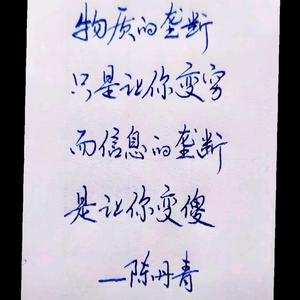 物质的垄断
只是让你变穷
而信息的垄断
是让你变傻
—陈丹青